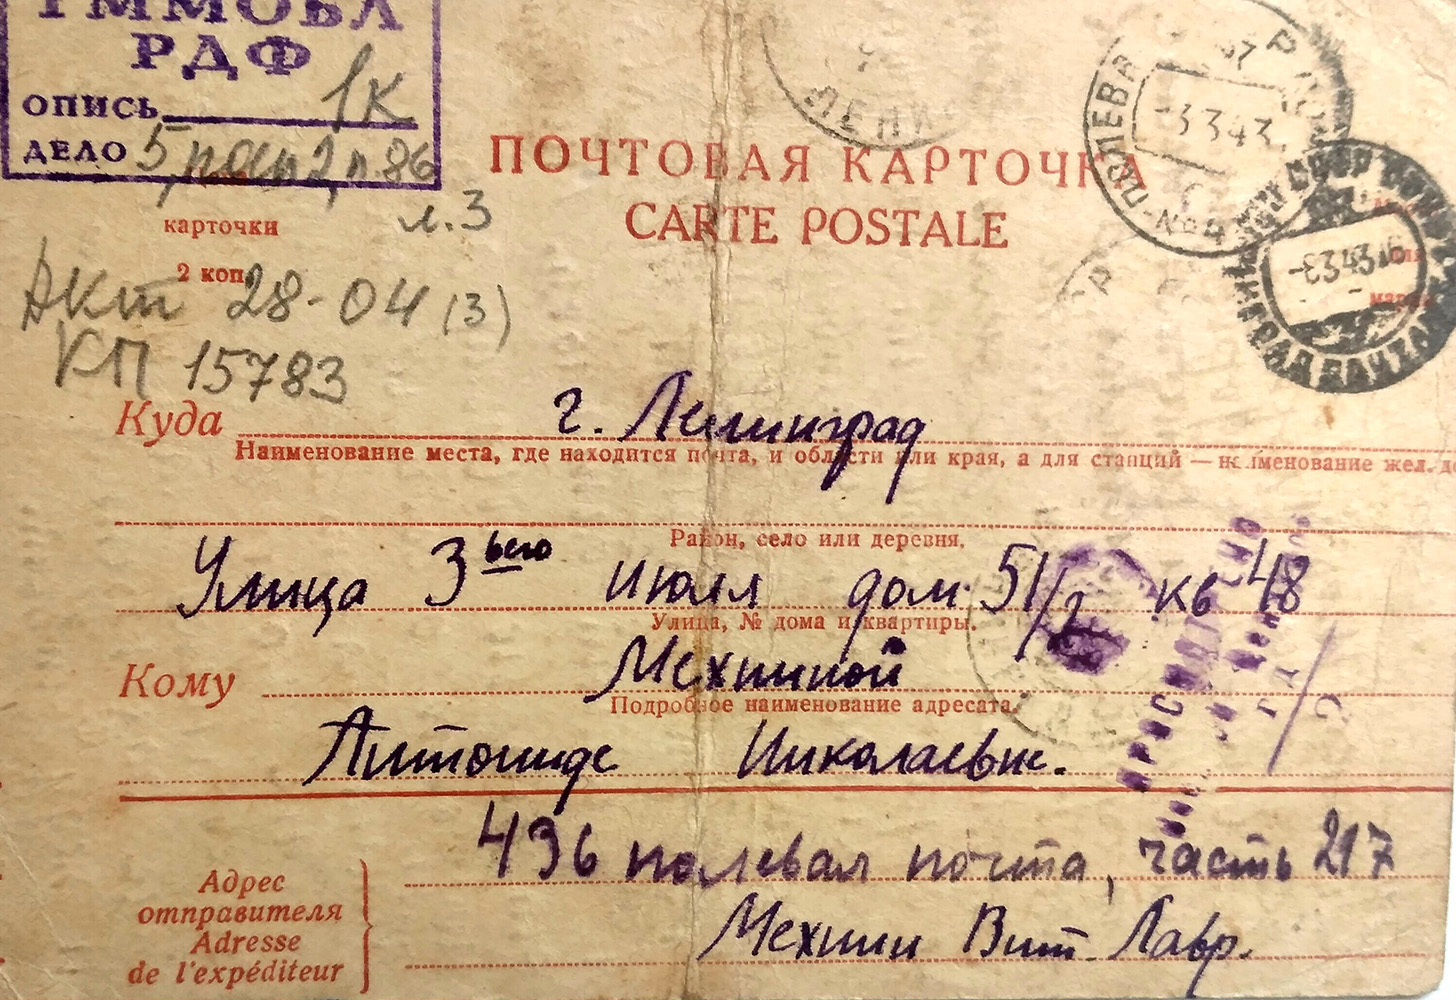 ГММОБЛ
РДФ
ОПИСЬ 1к
ДЕЛО 5, расп 2, п. 86
л. 3
карточки
2 коп
Акт 28-04 (3)
КП 15783
ПОЧТОВАЯ КАРТОЧКА
CARTE POSTALE
ЛЕНИ
ПОЛЕВАЯ
-3 3 43
№ 4
-3 3 43 16
Куда г. Ленинград
Наименование места, где находится почта, и области или края, а для станций — наименование жел. до
Район, село или деревня.
Улица 3ьего июля дом. 51/2 кв 48
Улица, № дома и квартиры.
Кому Мехниной
Подробное наименование адресата.
Антониде Николаевне.
436 полевая почта, часть 217
Адрес
отправителя
Adresse
de l'expéditeur
Мехнин Вит. Лавр.